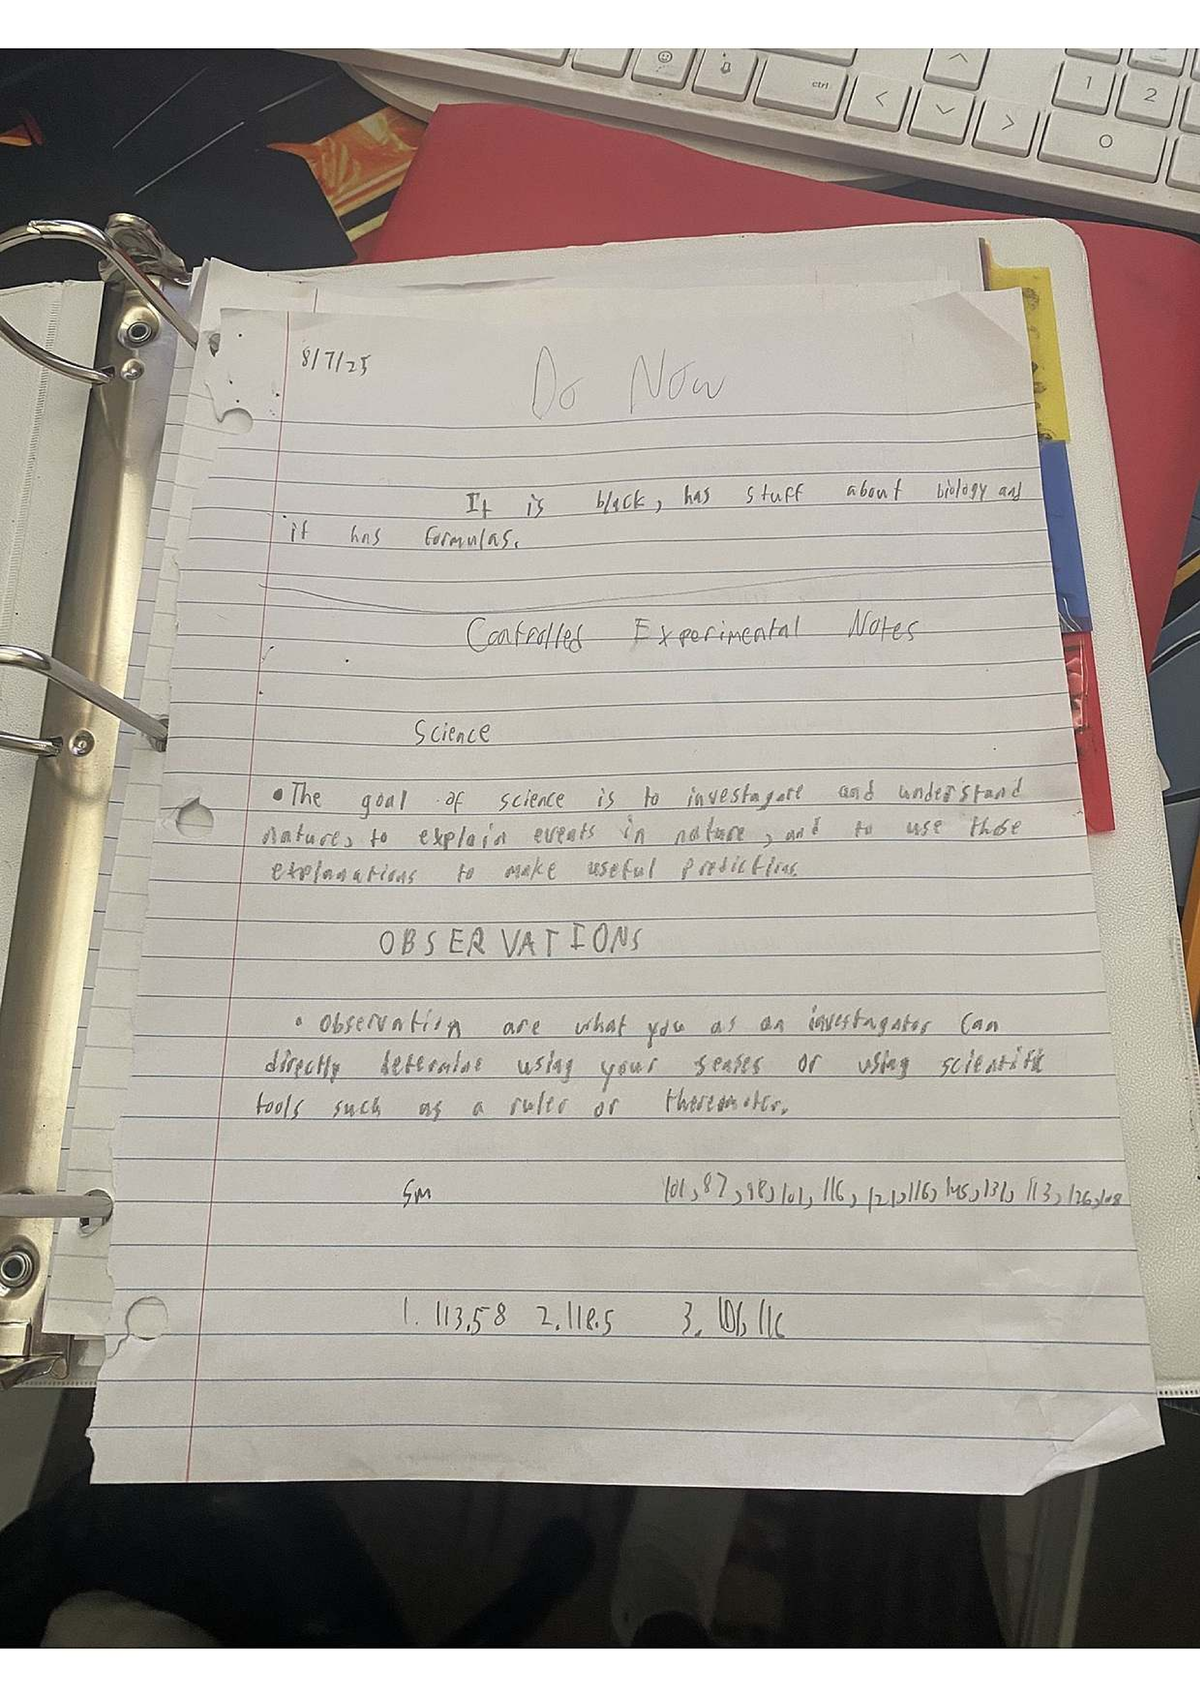 ctrl
1
2
0
8/7/25
Do Now
It is black, has stuff about biology and
it has formulas.
Controlled Experimental Notes
Science
• The goal of science is to investagate and understand
nature, to explain events in nature, and to use those
explanations to make useful predictions
OBSERVATIONS
• Observation are what you as an investagator can
directly determine using your senses or using scientific
tools such as a ruler or
5m 101, 87, 98, 101, 116, 121, 116, 145, 131, 113, 126, 108
1. 113.58 2. 118.5 3. 116